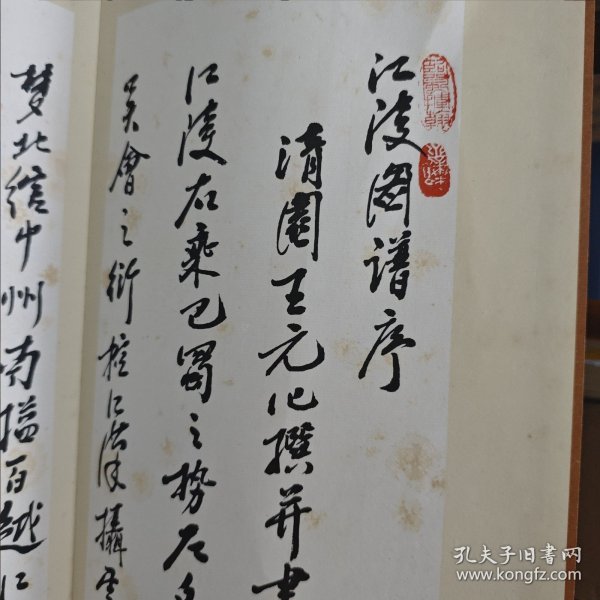 江陵图谱序
清園王元化撰并书
江陵右乘巴蜀之势左
吴會之衍控江漢攝
梦北绾中州南搤百越江
孔夫子旧书网
www.kongfz.com